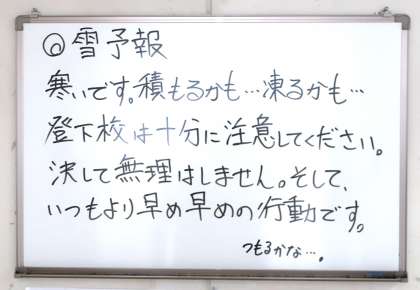 ◎雪予報
寒いです。積もるかも…凍るかも…
登下校は十分に注意してください。
決して無理はしません。そして、
いつもより早め早めの行動です。
つもるかな…。